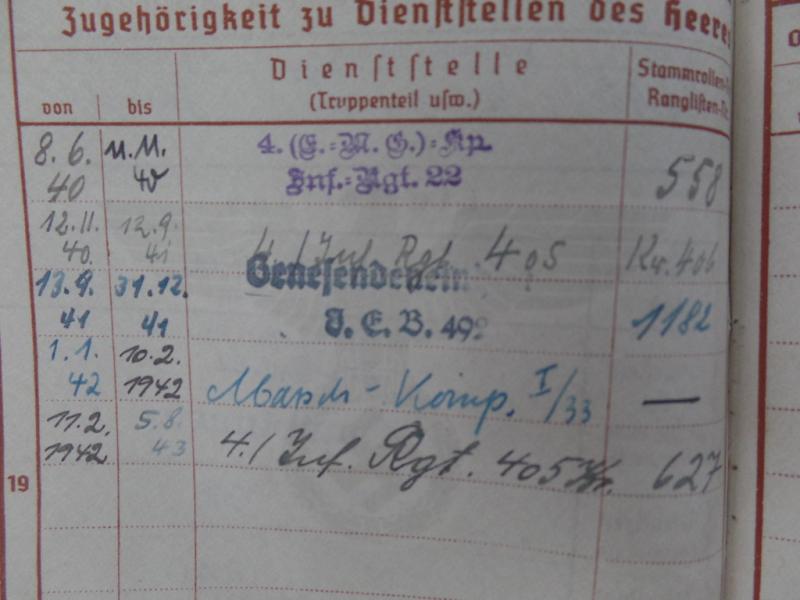 Zugehörigkeit zu Dienststellen des Heeres
von bis Dienststelle
(Truppenteil usw.)
Stammrollen-
Ranglisten-
8.6. 11.11. 4. (E.=M. G.)=Kp.
40 40 Inf.=Rgt. 22 558
12.11. 12.9.
40. 41 4./Inf. Rgt. 405 Kr. 406
13.9. 31.12. Genesenden
41 41 I. E. B. 49 1182
1.1. 10.2.
42 1942 Marsch-Komp. I/33 —
11.2. 5.8.
1942 43 4./Inf. Rgt. 405 Kr. 627
19